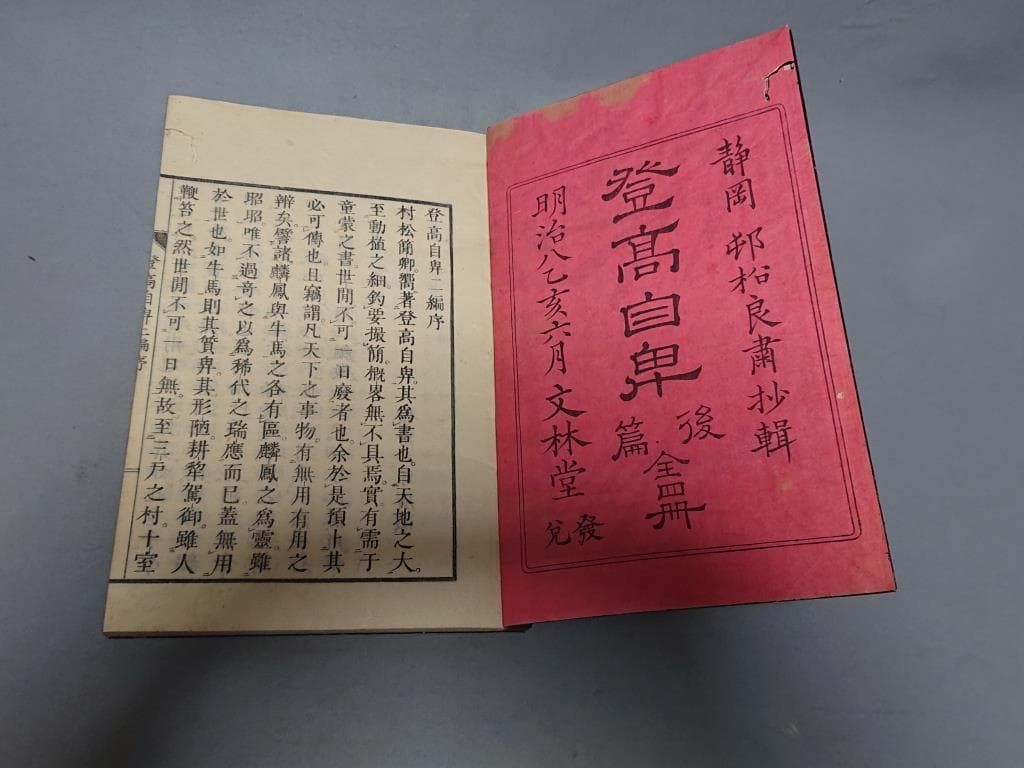 静岡 邨松良肅抄輯
登高自卑 後篇 全冊
明治八乙亥六月 文林堂 發兌
登高自卑二編序
村松簡卿嚮著登高自卑。其爲書也。自天地之大。
至動植之細。鈎要撮簡。概畧無不具焉。實有需于
童蒙之書。世間不可一日廢者也。余於是預卜其
必可傳也。且竊謂凡天下之事物。有無用有用之
辨矣。譬諸麟鳳與牛馬之各有區。麟鳳之爲靈。雖
昭昭。唯不過奇之以爲稀代之瑞應而已。蓋無用
於世也。如牛馬則其質卑其形陋。耕犂駕御。雖人
鞭笞之。然世間不可一日無。故至三戸之村。十室
登高自卑二編序